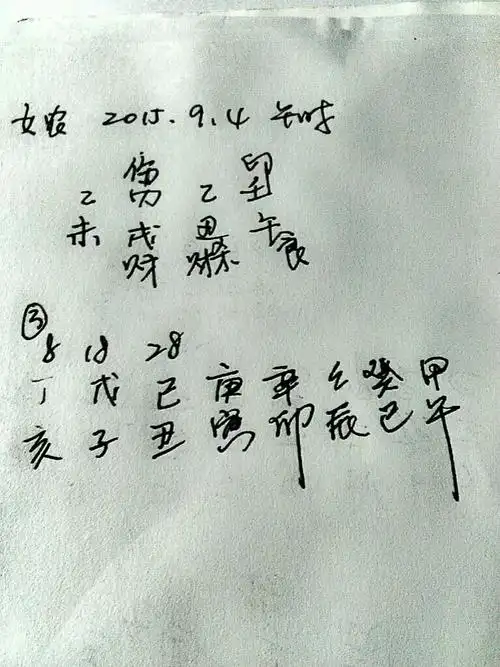 女农 2015.9.4 午时
伤 印
乙 丙 乙 壬
未 戌 丑 午
财 财 食
③
8 18 28
丁 戊 己 庚 辛 壬 癸 甲
亥 子 丑 寅 卯 辰 巳 午